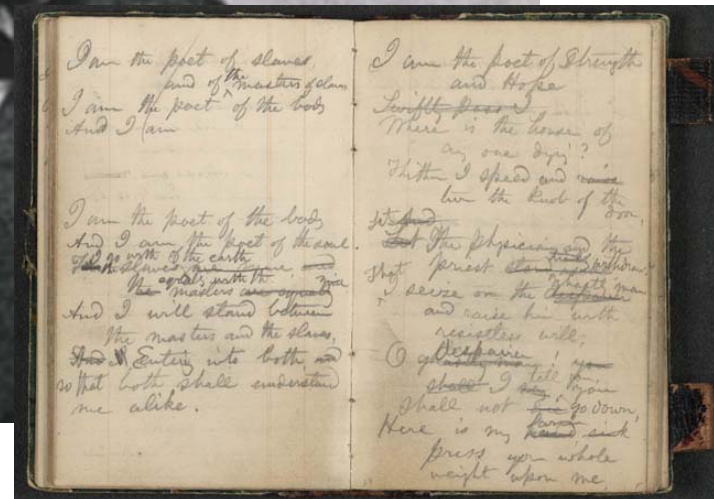 I am the poet of slaves,
and of the masters of slaves
I am the poet of the body
And I am
I am the poet of the body
And I am the poet of the soul
I go with the slaves of the earth equally with the masters
And I will stand between
the masters and the slaves,
Entering into both, and
so that both shall understand
me alike.
I am the poet of Strength
and Hope
Swiftly pass I
Where is the house of
any one dying?
Thither I speed and raise
turn the knob of the
door,
Let The physician and the
priest withdraw,
That I seize on the
and raise him with
resistless will;
O
despairer
shall I tell you
shall not go down,
Here is my hand
press your whole
weight upon me